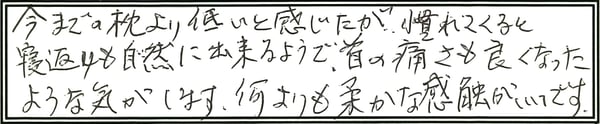 今までの枕より低いと感じたが、慣れてくると
寝返りも自然に出来るようで、首の痛さも良くなった
ような気がします、何よりも柔かな感触がいいです。